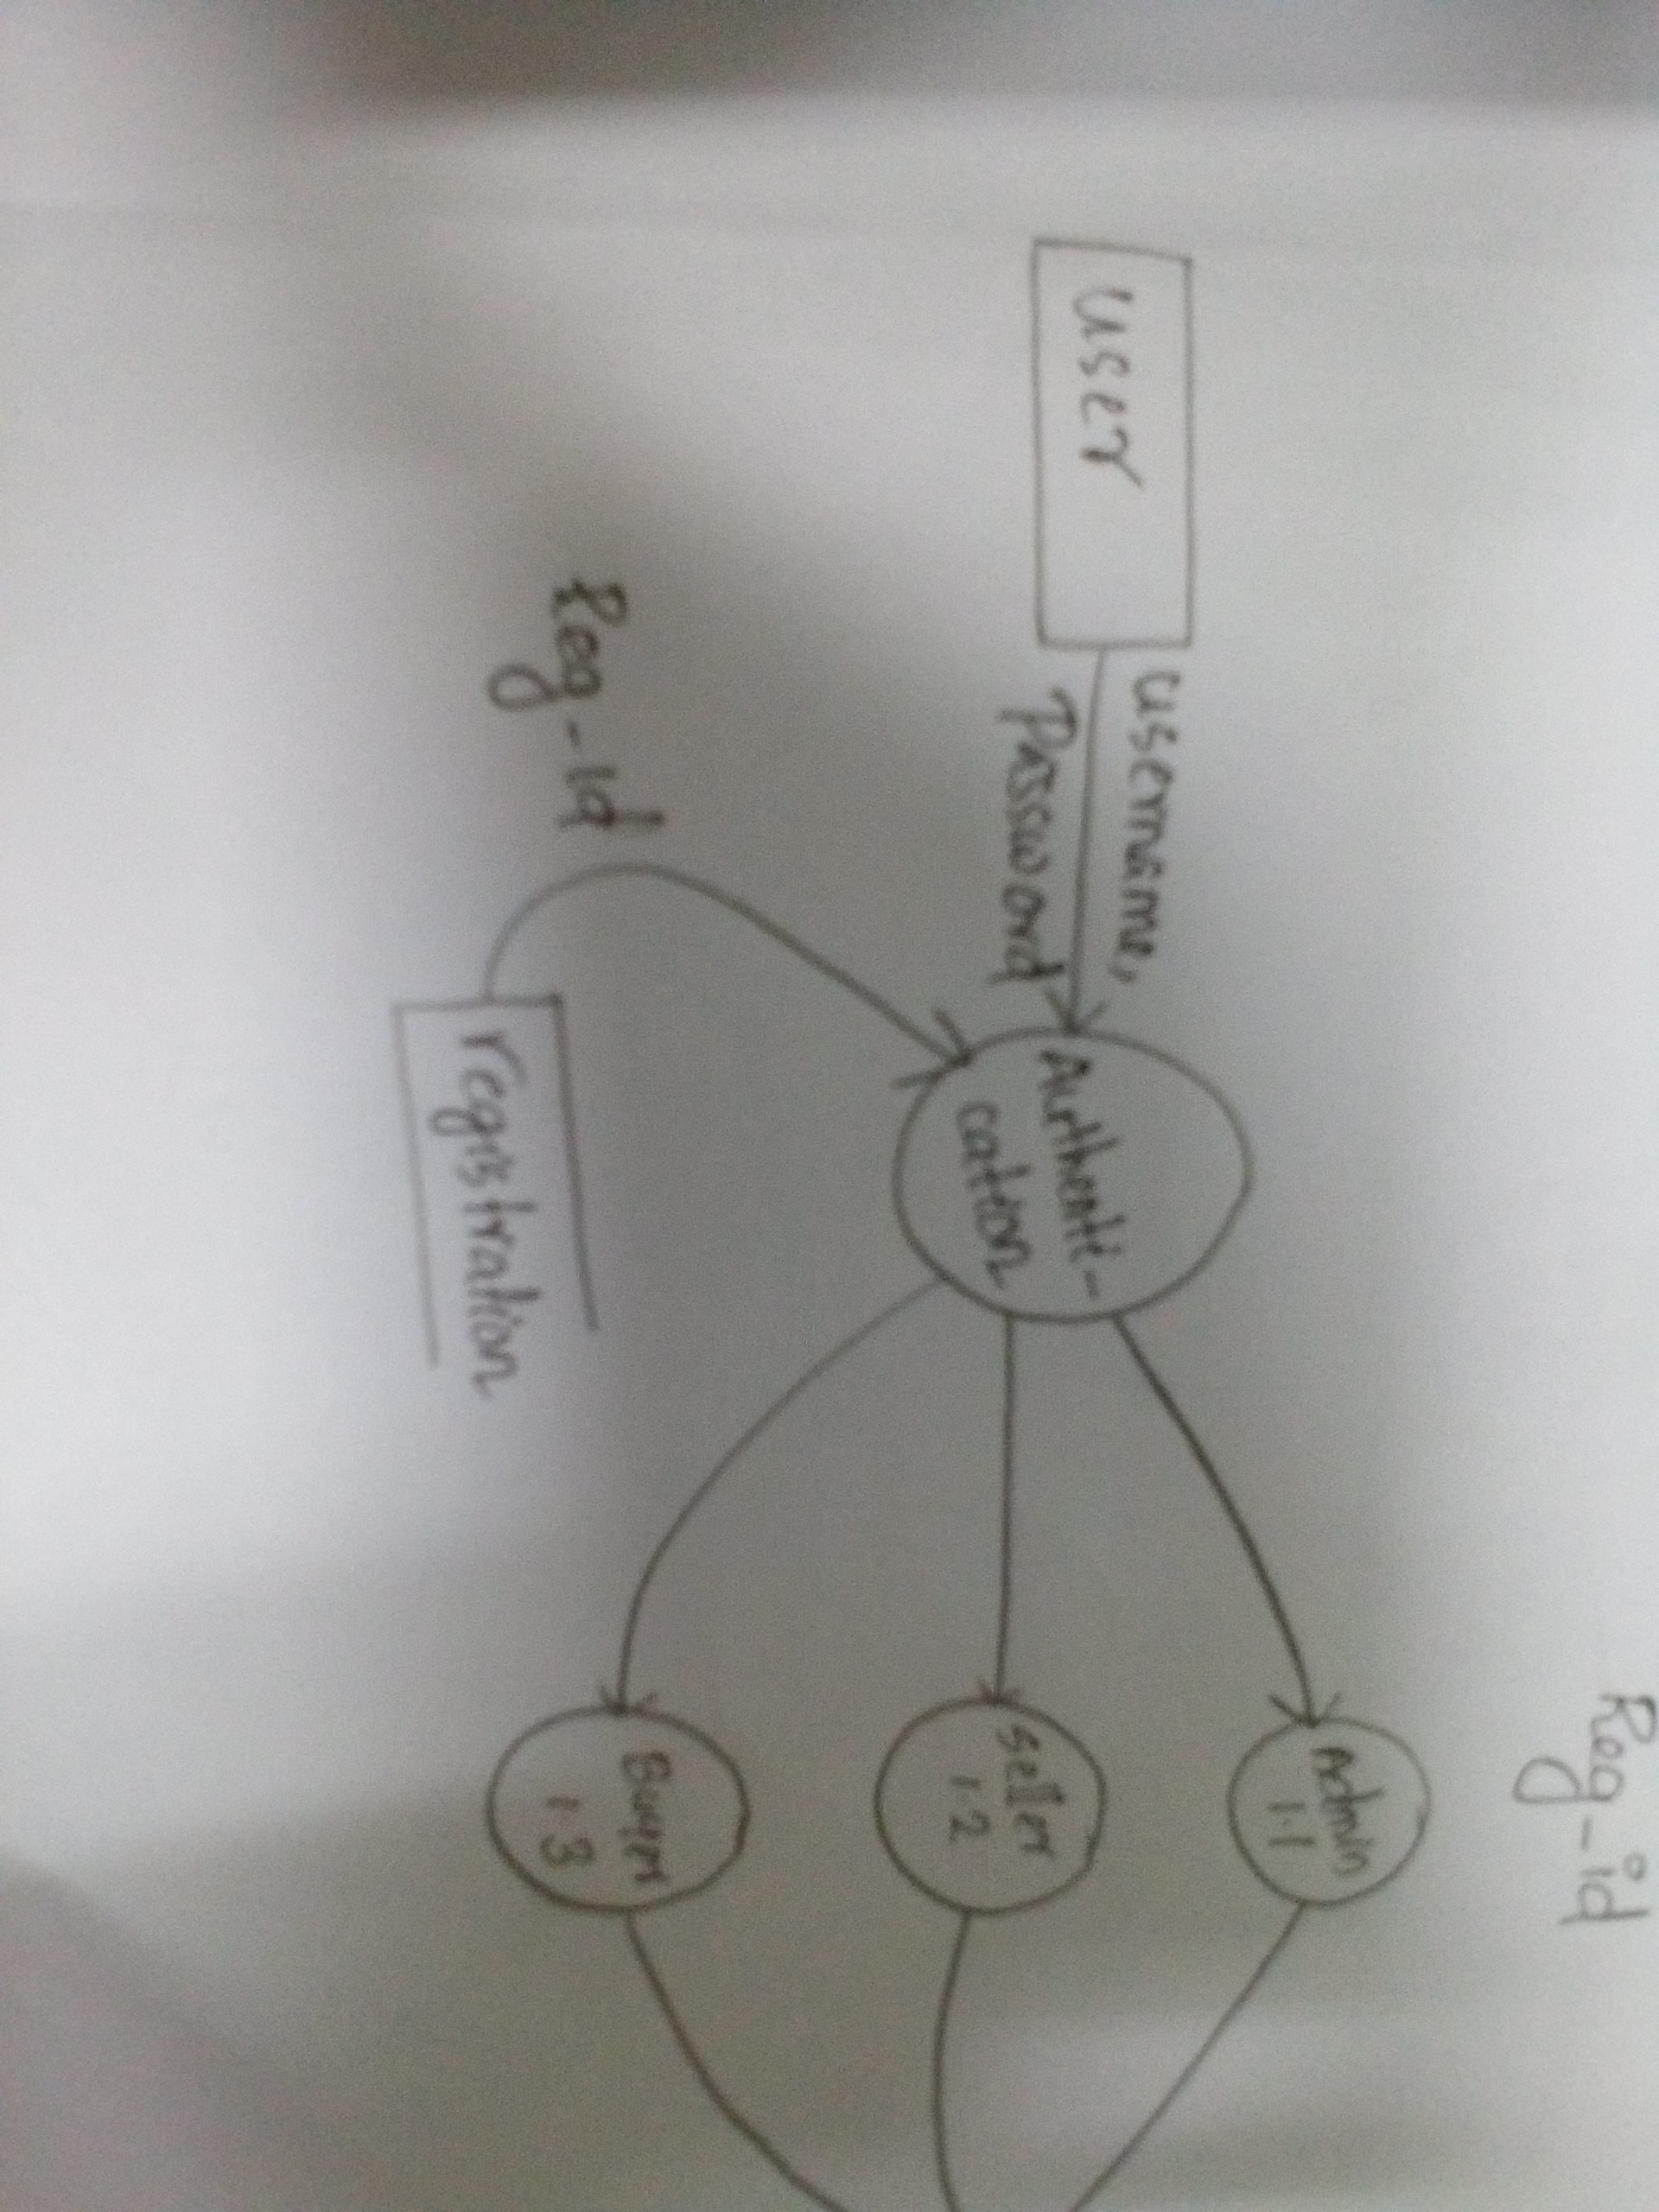 Reg_id
Admin
1.1
user
username,
Password
Authenti-
cation
seller
1.2
Buyer
1.3
Reg_id
registration